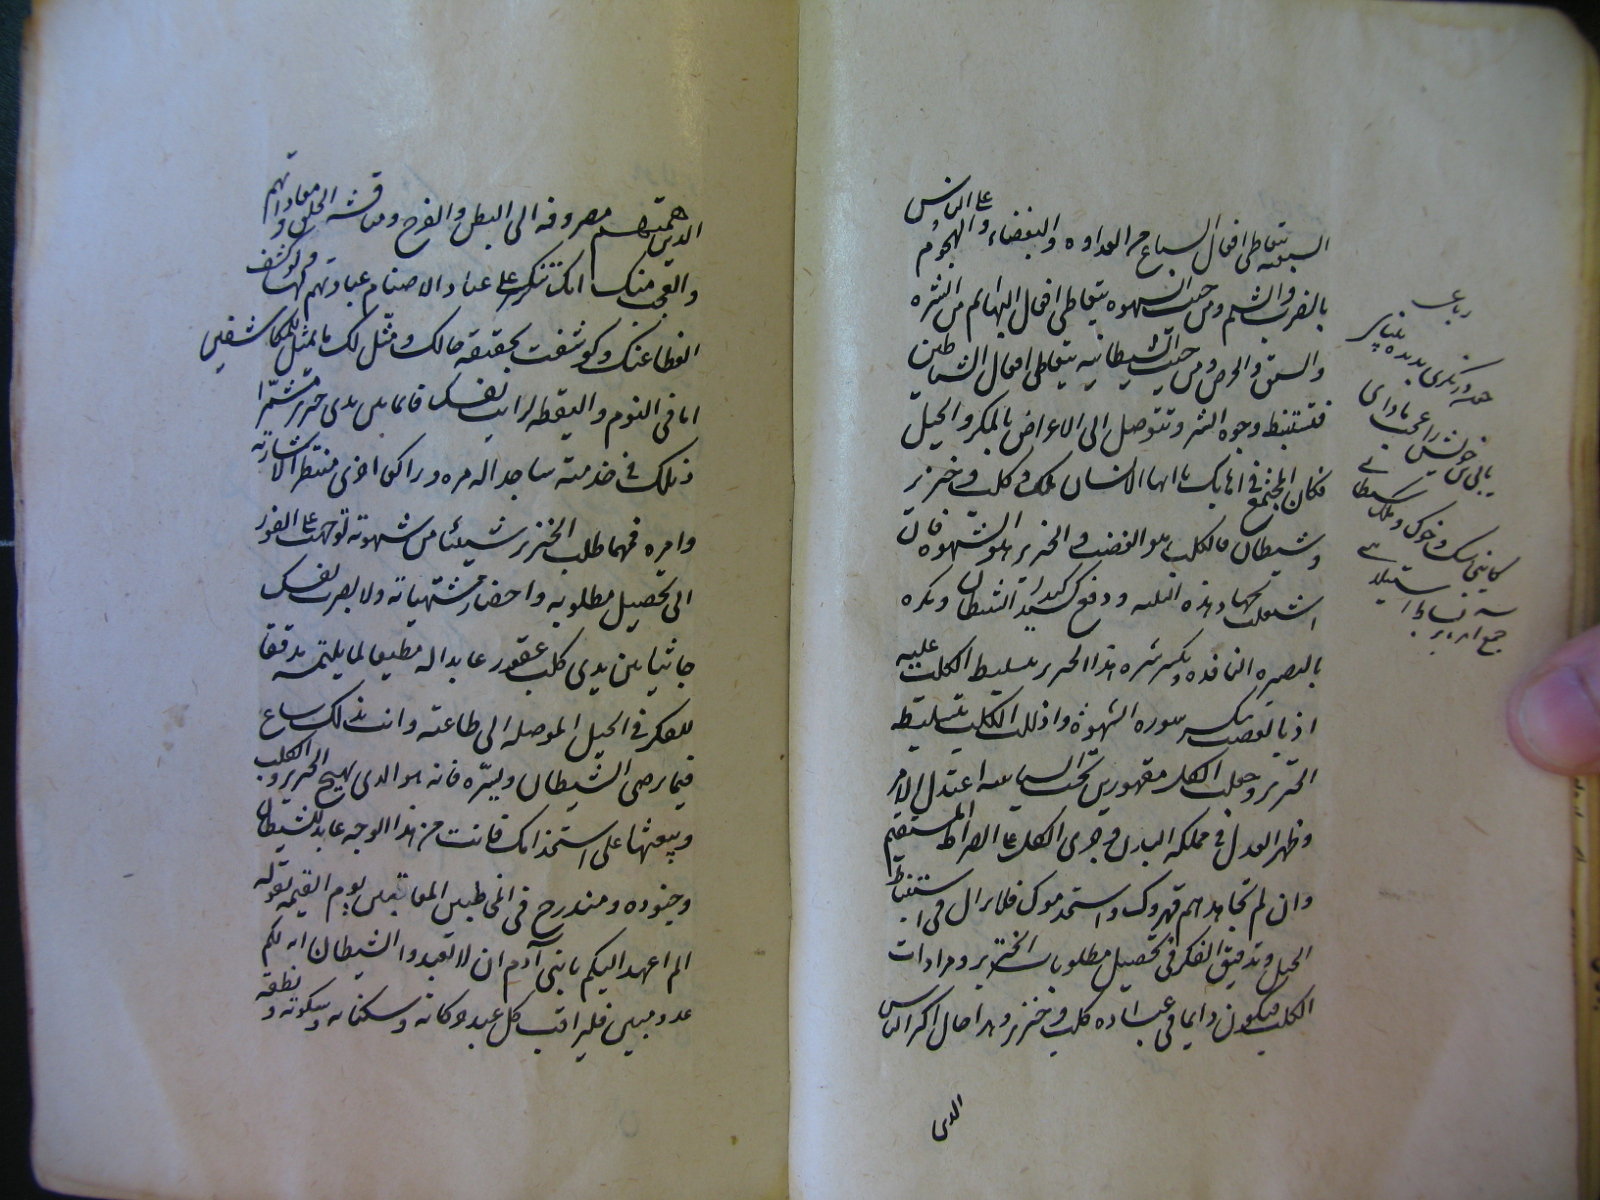 السبعية يتعاطى افعال السباع من العداوه والبغضاء والهجوم على الناس
بالضرب والشتم ومن حيث الشهوه يتعاطى افعال البهايم من الشره
والشبق والحرص ومن حيث الشيطانيه يتعاطى افعال الشياطين
فتستنبط وجوه الشر وتتوصل الى الاعراض بالمكر والحيل
فكان المجتمع في اهابك يا ايها الانسان ملك وكلب وخنزير
وشيطان فالكلب هو الغضب والخنزير هو الشهوه فان
اشتغلت بجهاد هذه الثلثه ودفع كيد الشيطان ومكره
بالبصيره النافذه وبكسر شره هذا الخنزير بتسليط الكلب عليه
اذ بالغضب ينكسر سوره الشهوة واذللت الكلب بتسليط
الخنزير وجعلت الكل مقهورين تحت السياسه اعتدل الامر
وظهر العدل في مملكه البدن وجرى الكل على الصراط المستقيم
وان لم تجاهدهم قهروك واستخدموك فلا يزال في استنباط
الحيل وتدقيق الفكر في تحصيل مطلوبات الخنزير ومرادات
الكلب فيكون دايما في عباده كلب وخنزير وهذا حال اكثر الناس
الذين
رباعى
الذين همتهم مصروفه الى البطن والفرج ومناقشه الخلق ومعاداتهم
والعجب منك انك تنكر على عباد الاصنام عبادتهم لها ولو كشف
الغطا عنك وكوشفت بحقيقه حالك ومثّل لك ما يمثل للمكاشفين
اما في النوم واليقظه لرايت نفسك قائما بين يدى خنزير مشمّرا
ذيلك في خدمته ساجدا له مره وراكعا اخرى منتظرا لاشارته
وامره فمهما طلب الخنزير شيئا من شهوته توجهت على الفور
الى تحصيل مطلوبه واحضار مشتهياته ولابصرت نفسك
جاثيا بين يدى كلب عقور عابدا له مطيعا لما يلتمسه مدققا
للفكر في الحيل الموصله الى طاعته وانت بذلك ساع
فيما يرضى الشيطان ويسرّه فانه هو الذى يهيج الخنزير والكلب
ويبعثها على استخدامك فانت من هذا الوجه عابد للشيطان
وجنوده ومندرج في المخاطبين المعاتبين يوم القيمه بقوله
الم اعهد اليكم يا بنى آدم ان لا تعبدوا الشيطان انه لكم
عدو مبين فليراقب كل عبد حركاته وسكناته وسكوته ونطقه